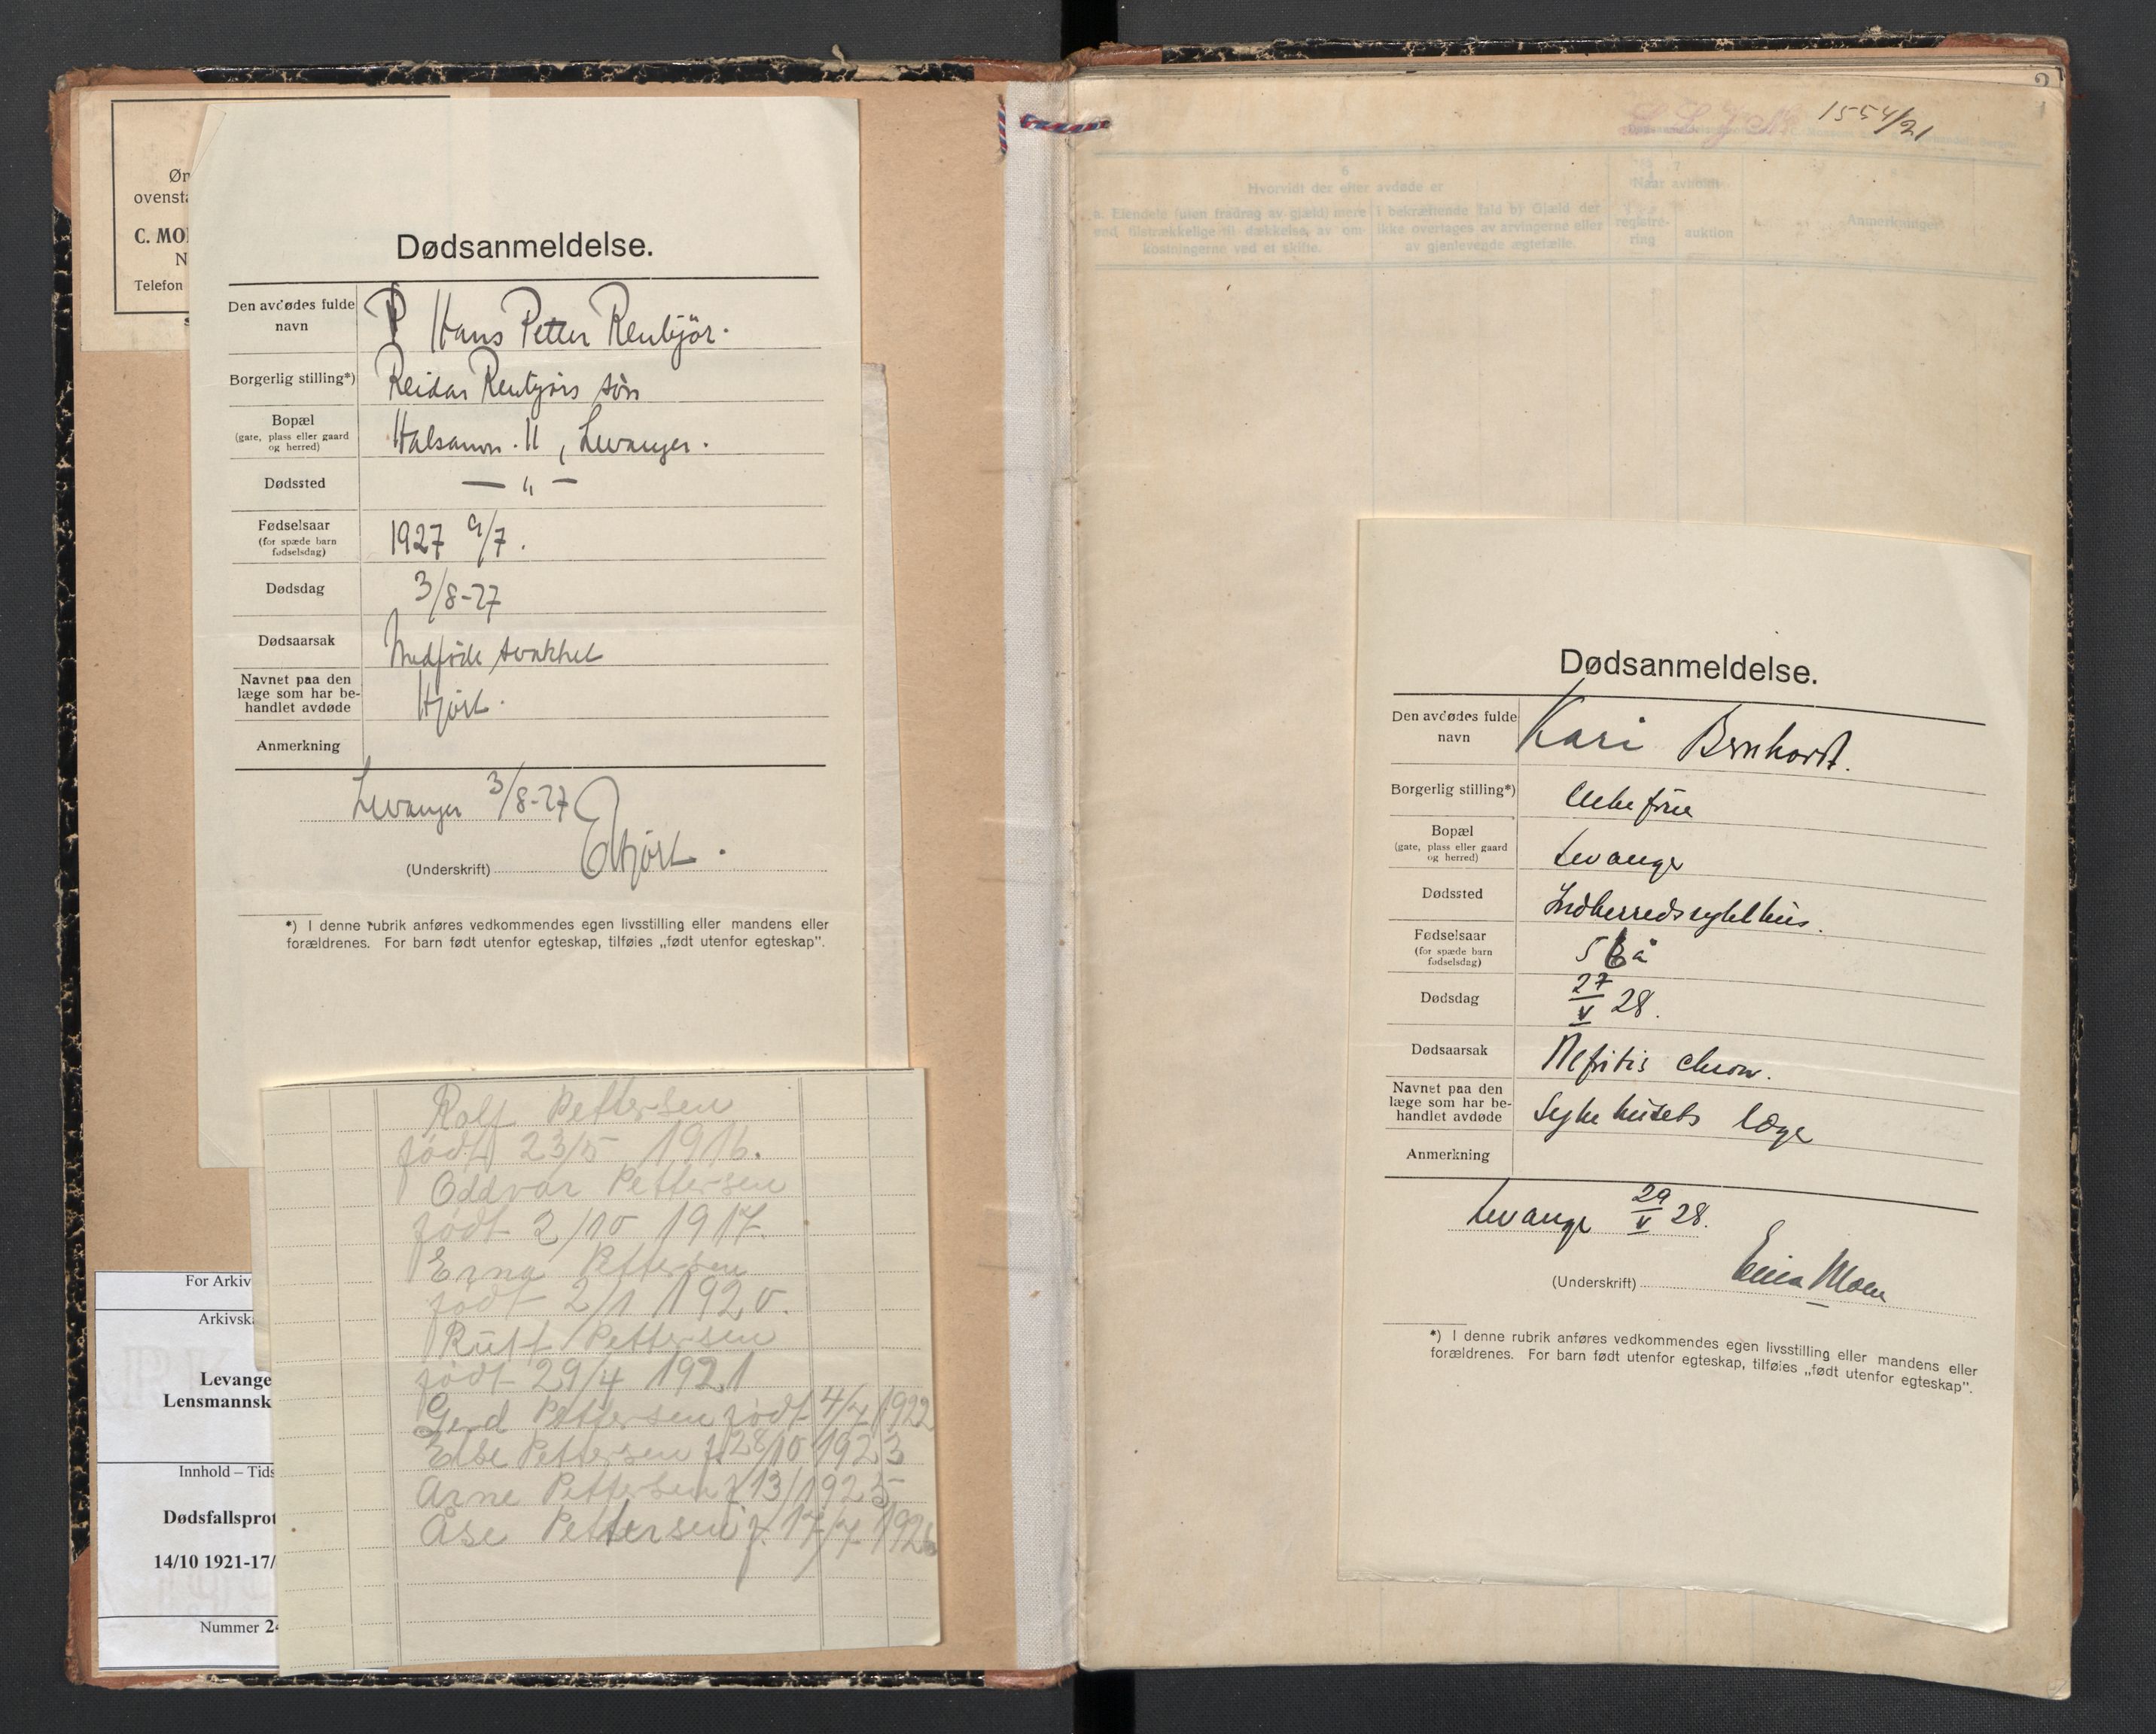 Øn
ovenst
C. MO
N
Telefon
Dødsanmeldelse.
Den avdødes fulde
navn
Hans Petter Renbjör.
Borgerlig stilling*)
Reidar Renbjörs søn
Bopæl
(gate, plass eller gaard
og herred)
Halsanv. 11, Levanger.
Dødssted
— „ —
Fødselsaar
(for spæde barn
fødselsdag)
1927 9/7.
Dødsdag
3/8-27
Dødsaarsak
Medfødt svakhet
Navnet paa den
læge som har be-
handlet avdøde
Hjort.
Anmerkning
Levanger 3/8-27
(Underskrift)
EHjort.
*) I denne rubrik anføres vedkommendes egen livsstilling eller mandens eller
forældrenes. For barn født utenfor egteskap, tilføies „født utenfor egteskap”.
Rolf Pettersen
født 23/5 1916.
Oddvar Pettersen
født 2/10 1917.
Erna Pettersen
født 2/1 1920.
Rutt Pettersen
født 29/4 1921
Gerd Pettersen født 4/7 1922
Else Pettersen f. 28/10 1923
Arne Pettersen f 13/1925
Åse Pettersen f. 17/7 1926
For Arkiv
Arkivsk
Levange
Lensmannsk
Innhold – Tids
Dødsfallsprot
14/10 1921-17/
Nummer 24
1554/21
6
Hvorvidt der efter avdøde er
a. Eiendele (uten fradrag av gjæld) mere
end tilstrækkelige til dækkelse av om-
kostningerne ved et skifte.
I bekræftende fald b) Gjæld der
ikke overtages av arvingerne eller
av gjenlevende ægtefælle.
7
Naar avholdt
registre-
ring
auktion
Anmerkninger
Dødsanmeldelse.
Den avdødes fulde
navn
Kari Brnhorst.
Borgerlig stilling*)
Enkefrue
Bopæl
(gate, plass eller gaard
og herred)
Levanger
Dødssted
Indherredssykehus.
Fødselsaar
(for spæde barn
fødselsdag)
56 å
Dødsdag
27/V 28.
Dødsaarsak
Nefritis chron.
Navnet paa den
læge som har be-
handlet avdøde
Sykehusets læge
Anmerkning
Levanger 29/V 28.
(Underskrift)
Moen
*) I denne rubrik anføres vedkommendes egen livsstilling eller mandens eller
forældrenes. For barn født utenfor egteskap, tilføies „født utenfor egteskap”.